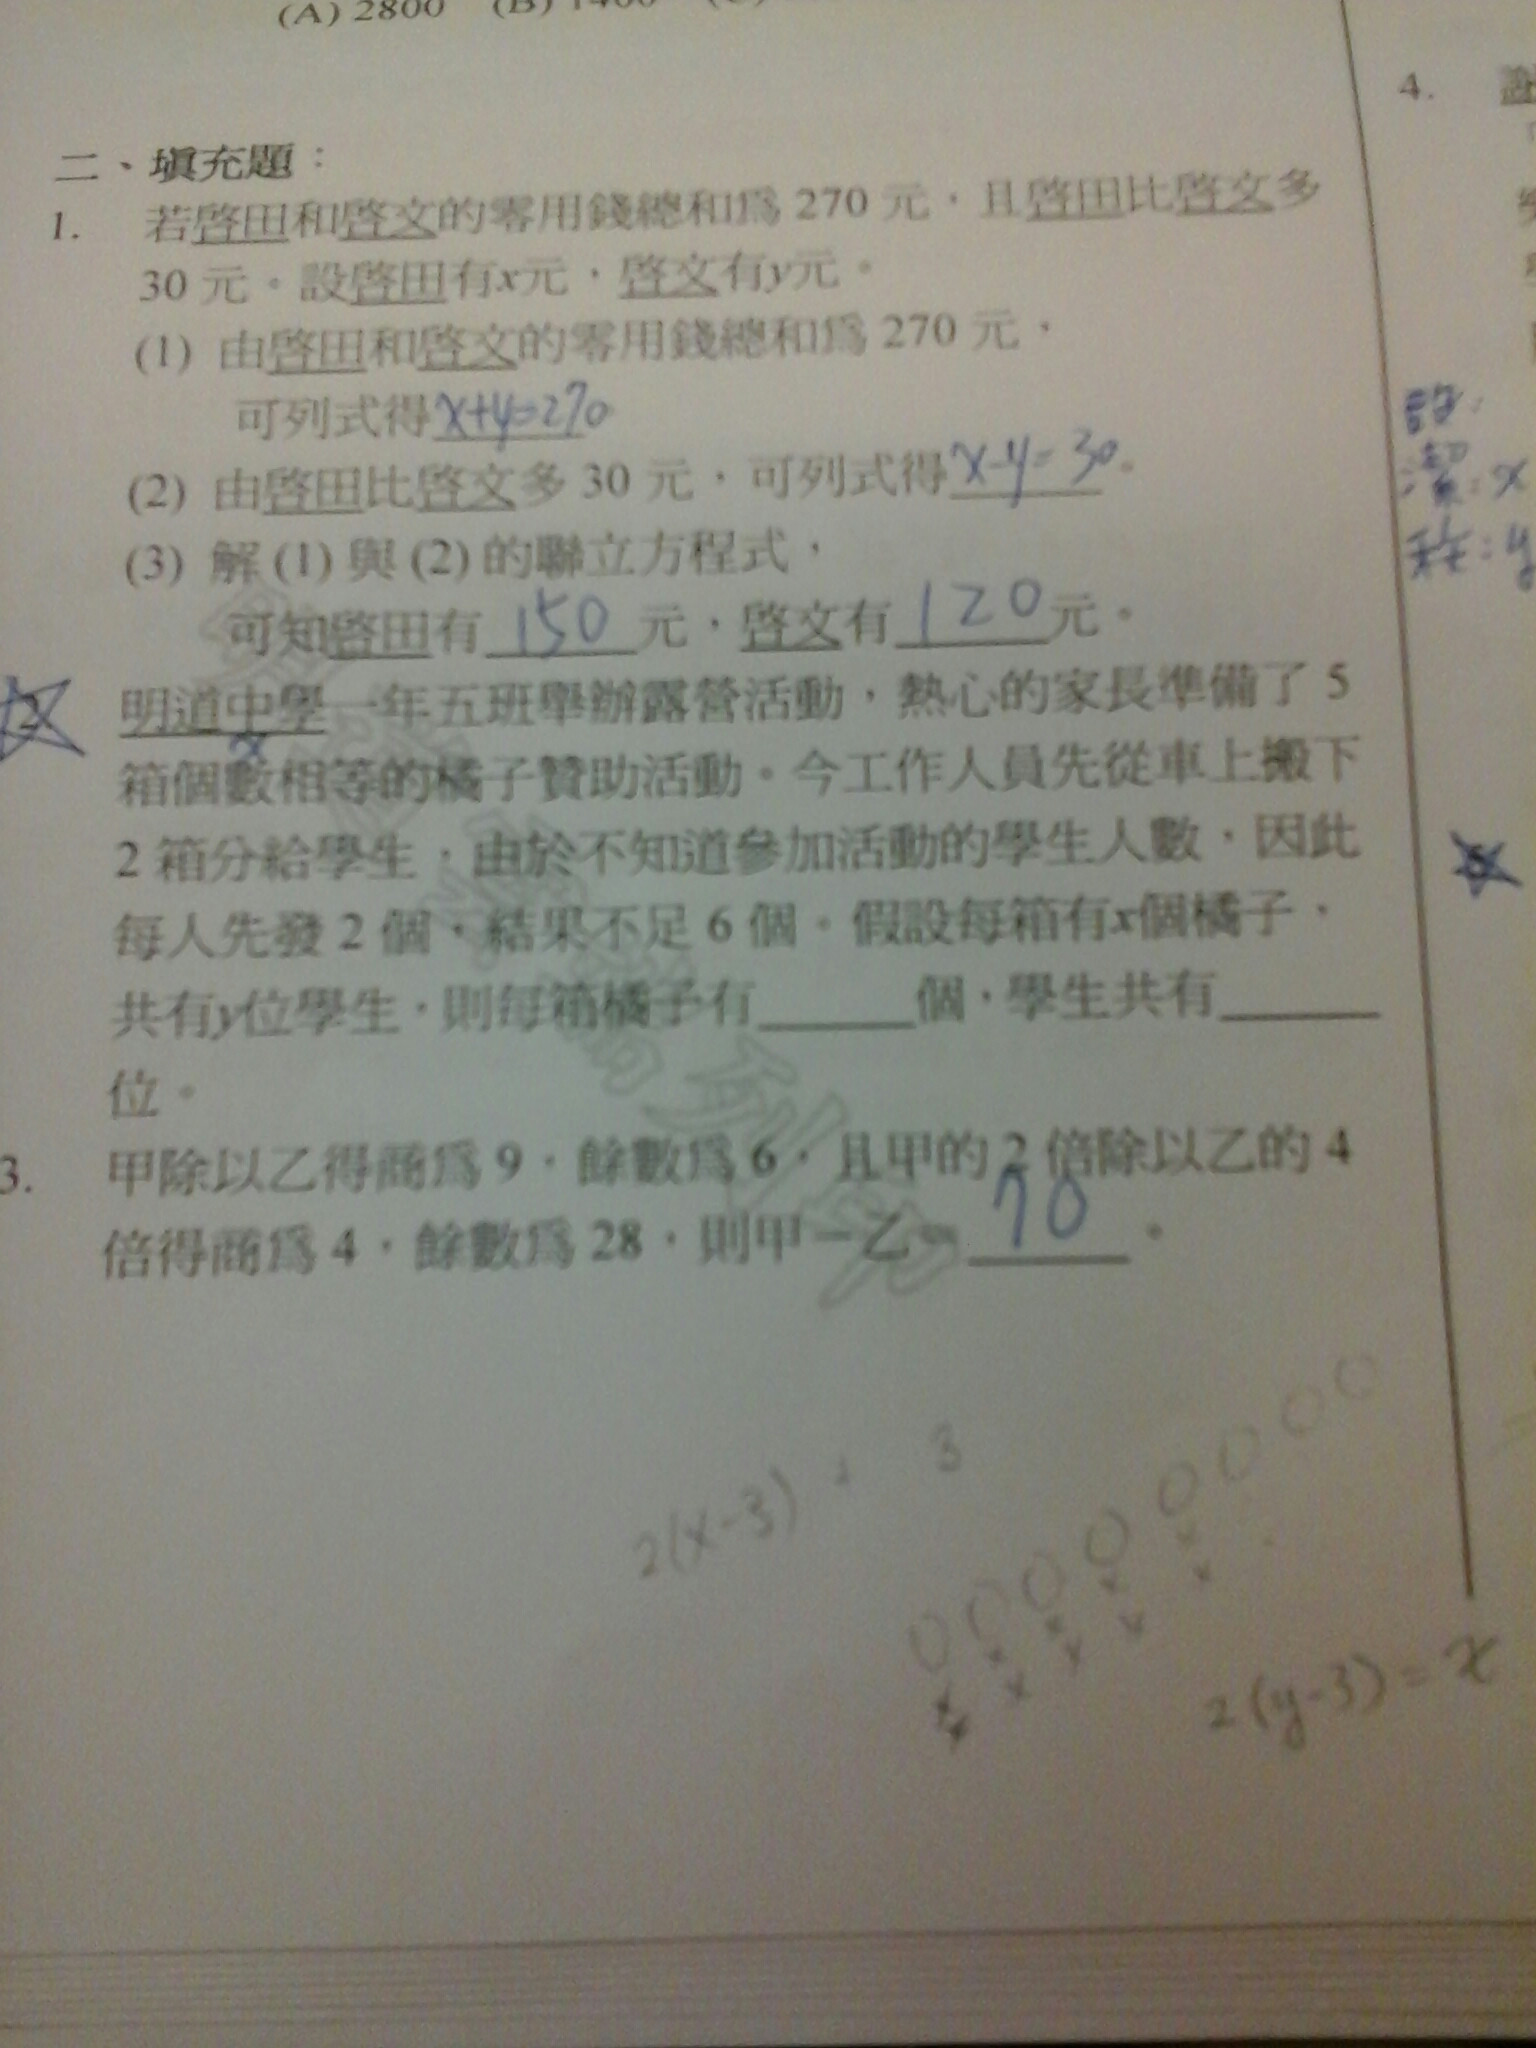 (A) 2800 (B) 1400
二、填充題：
1. 若啓田和啓文的零用錢總和爲 270 元，且啓田比啓文多
30 元。設啓田有x元，啓文有y元。
(1) 由啓田和啓文的零用錢總和爲 270 元，
可列式得x+y=270
(2) 由啓田比啓文多 30 元，可列式得x-y=30。
(3) 解 (1) 與 (2) 的聯立方程式，
可知啓田有 150 元，啓文有 120 元。
2 明道中學一年五班舉辦露營活動，熱心的家長準備了 5
x
箱個數相等的橘子贊助活動。今工作人員先從車上搬下
2 箱分給學生，由於不知道參加活動的學生人數，因此
每人先發 2 個，結果不足 6 個。假設每箱有x個橘子，
共有y位學生，則每箱橘子有______個，學生共有______
位。
3. 甲除以乙得商爲 9，餘數爲 6，且甲的 2 倍除以乙的 4
倍得商爲 4，餘數爲 28，則甲－乙＝ 70 。
2(x-3) = 3
2(y-3) = x
4.
設:
潔: x
程: y